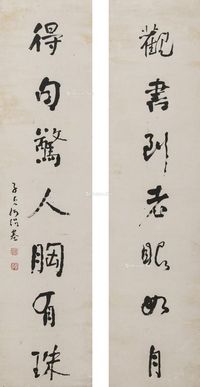 觀書到老眼如月
得句驚人胸有珠
子貞何紹基